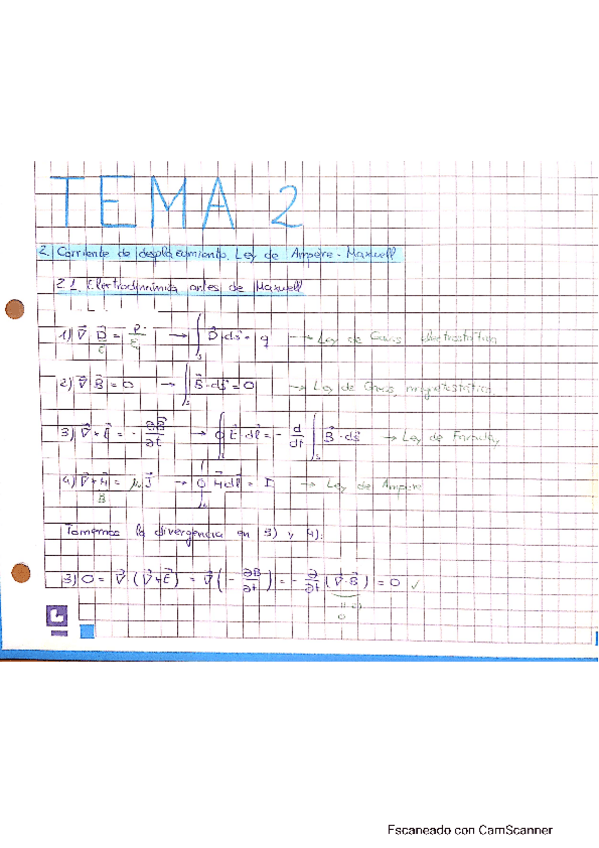 TEMA 2
2. Corriente de desplazamiento. Ley de Ampère-Maxwell
2.1. Electrodinámica antes de Maxwell
1) ∇ D = ρ/ε → ∫ D·ds = q → Ley de Gauss electrostática
E
2) ∇ B = 0 → ∫ B·ds = 0 → Ley de Gauss magnetostática
3) ∇×E = - ∂B/∂t → ∮ E·dl = - d/dt ∫ B·ds → Ley de Faraday
4) ∇×H = μ J → ∮ H dl = I → Ley de Ampère
B
Tomemos la divergencia en 3) y 4):
3) 0 = ∇ (∇×E) = ∇ (- ∂B/∂t) = - ∂/∂t (∇·B) = 0 ✓
0
Escaneado con CamScanner